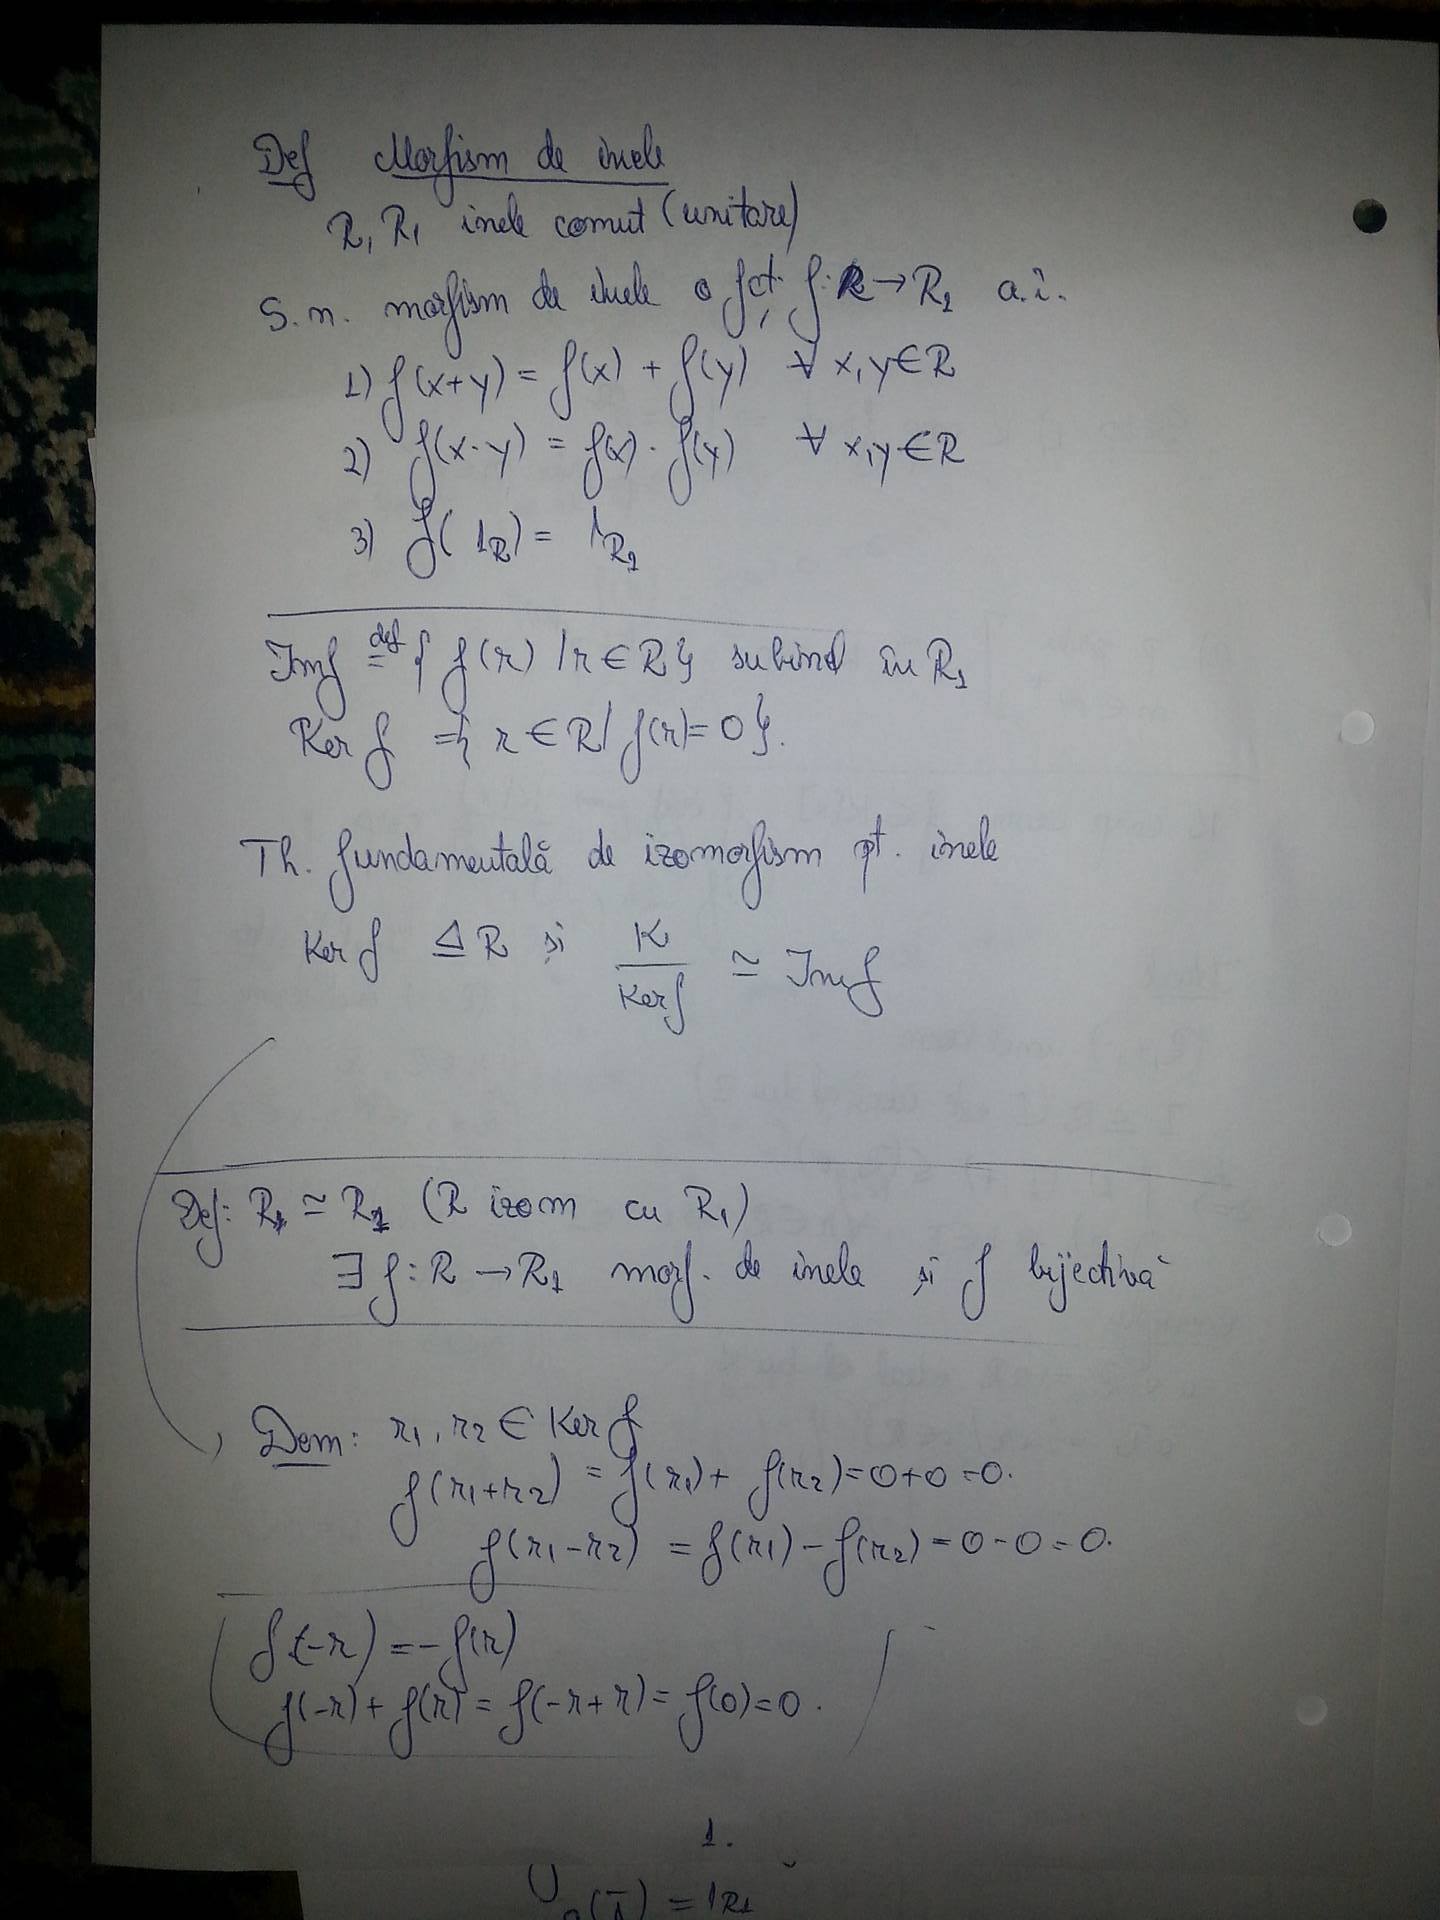 Def Morfism de inele
R, R1 inele comut (unitare)
S.n. morfism de inele o fct. f: R → R1 a.î.
1) f(x+y) = f(x) + f(y) ∀ x,y ∈ R
2) f(x·y) = f(x) · f(y) ∀ x,y ∈ R
3) f(1R) = 1R1
Imf def= { f(r) / r ∈ R} subinel în R1
Ker f = { r ∈ R / f(r) = 0 }.
Th. fundamentală de izomorfism pt. inele
Ker f ⊴ R și K/Ker f ≃ Im f
Def: R ≃ R1 (R izom cu R1)
∃ f: R → R1 morf. de inele și f bijectivă
Dem: r1, r2 ∈ Ker f
f(r1+r2) = f(r1) + f(r2) = 0+0 = 0.
f(r1-r2) = f(r1) - f(r2) = 0-0 = 0.
f(-r) = -f(r)
f(-r) + f(r) = f(-r+r) = f(0) = 0.
1.
= 1R1